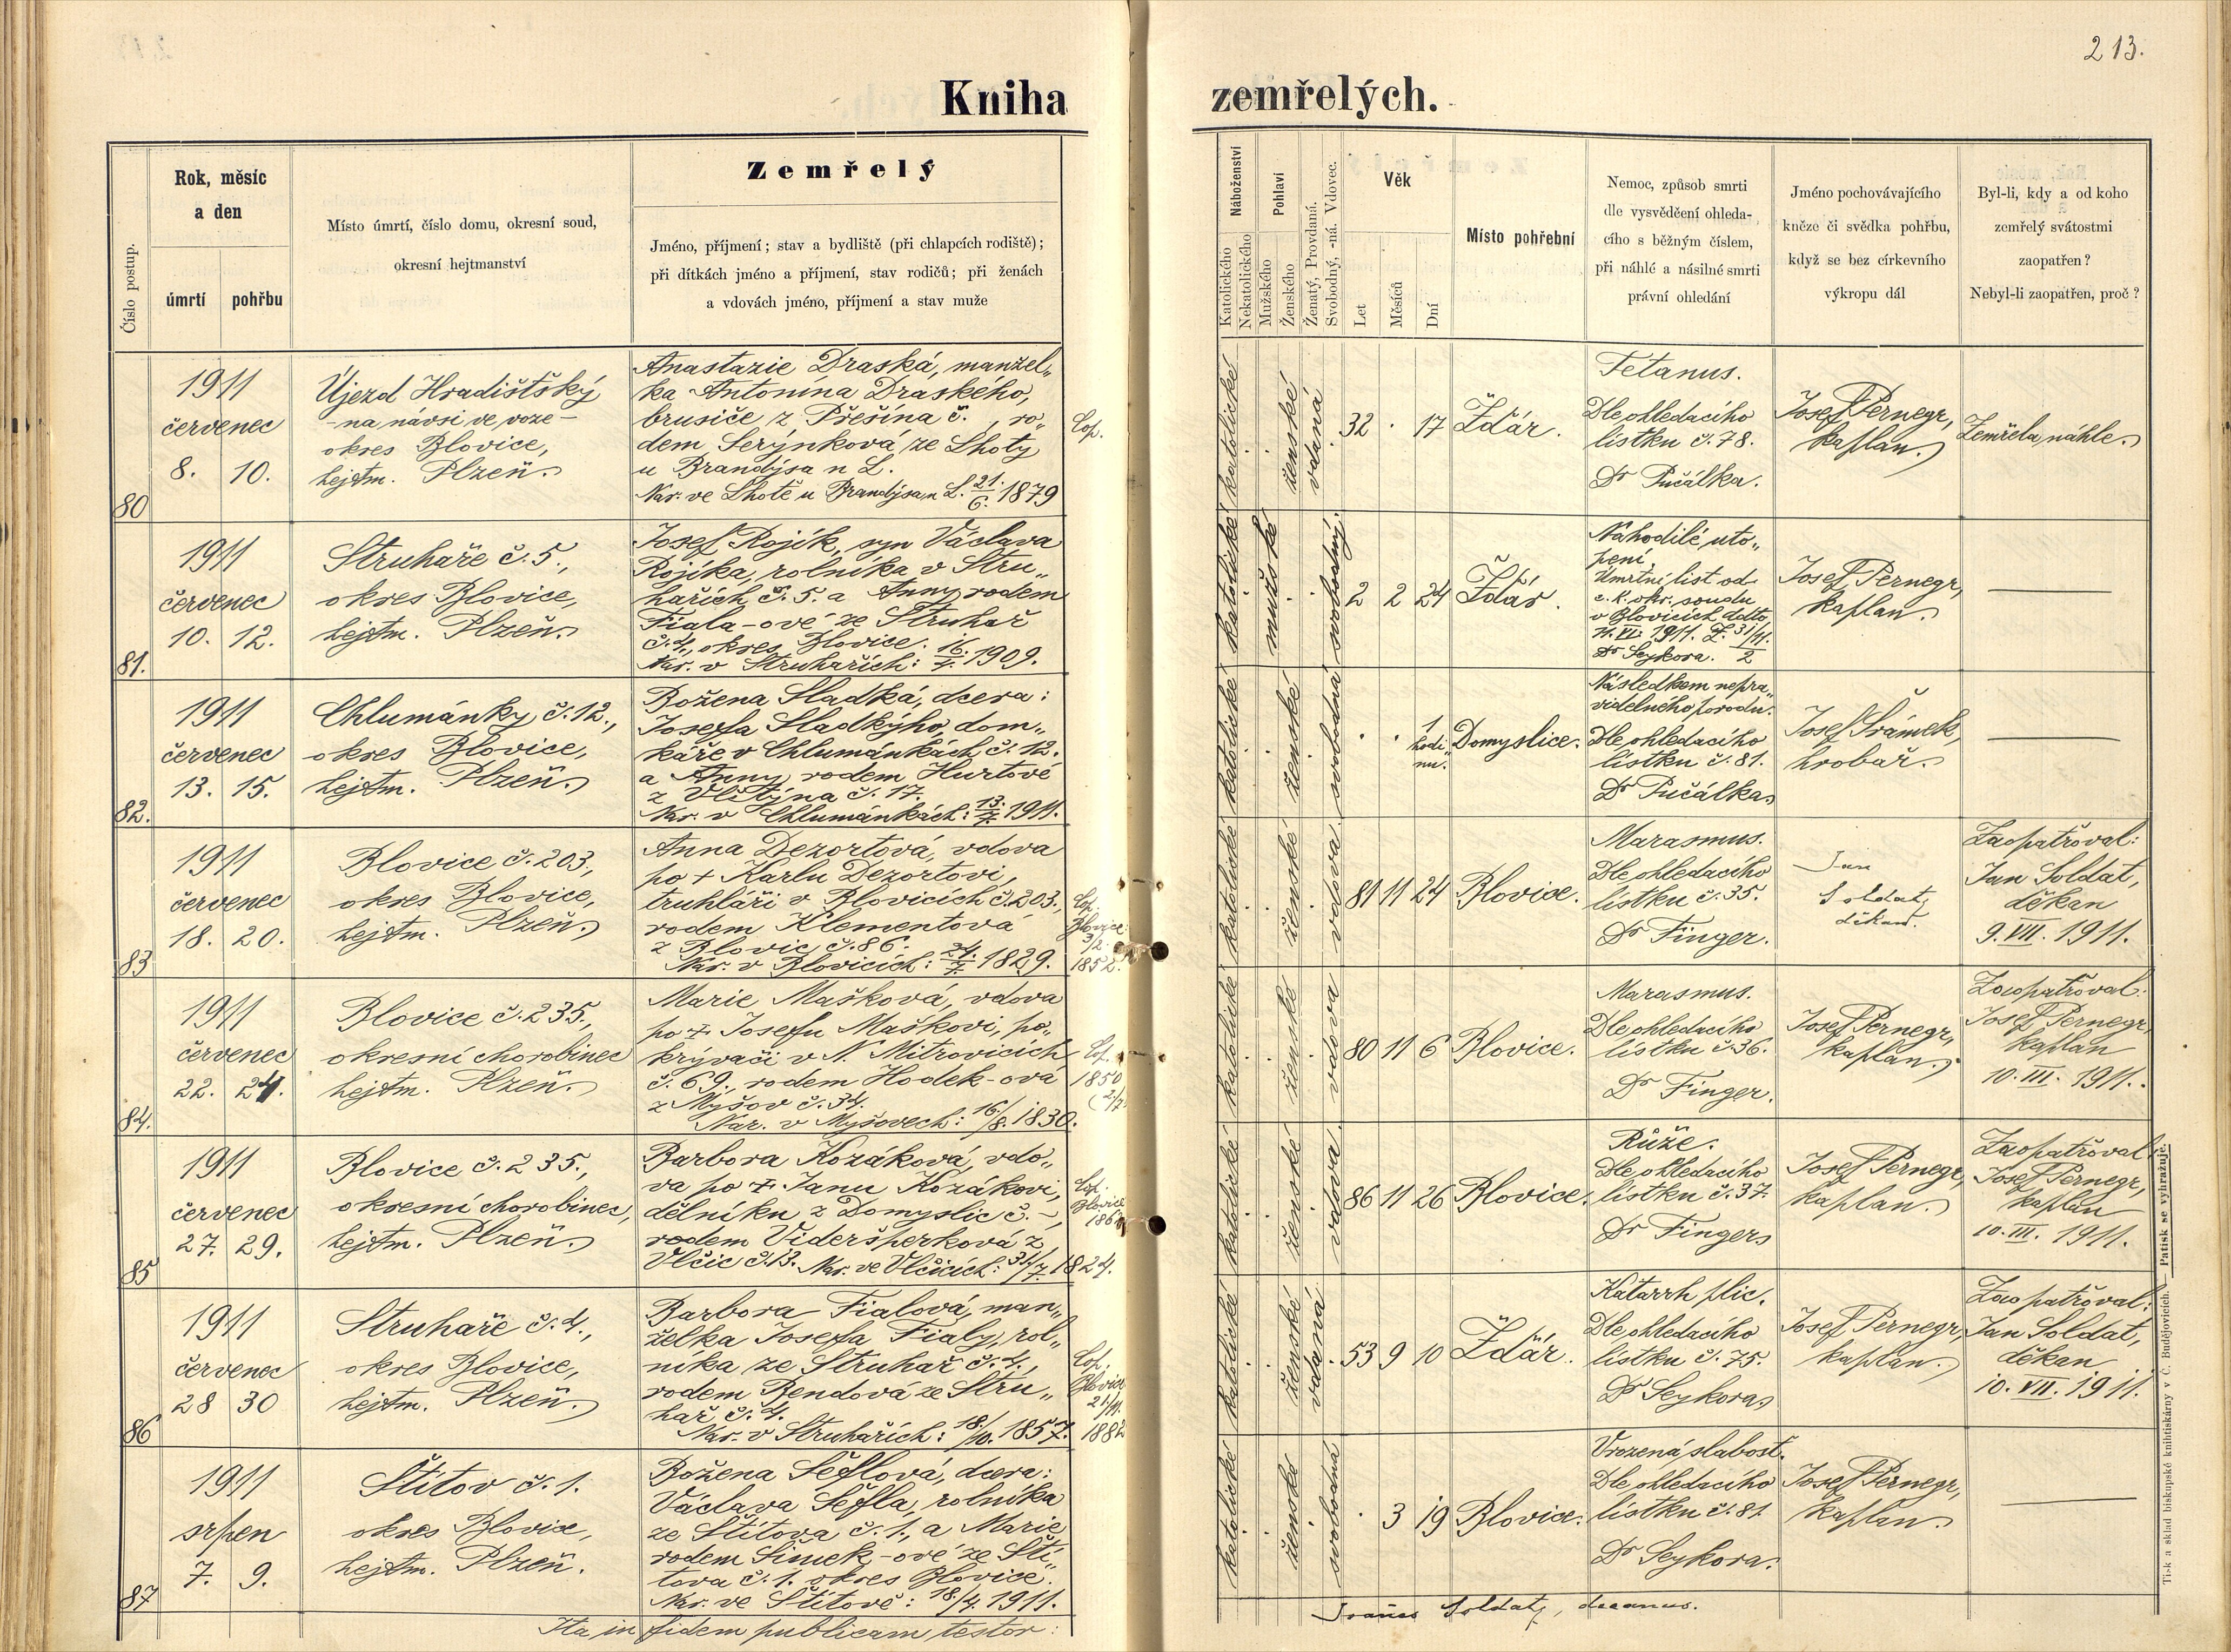 213.
Kniha zemřelých.
Číslo postup.
Rok, měsíc
a den
úmrtí pohřbu
Místo úmrtí, číslo domu, okresní soud,
okresní hejtmanství
Zemřelý
Jméno, příjmení; stav a bydliště (při chlapcích rodiště);
při dítkách jméno a příjmení, stav rodičů; při ženách
a vdovách jméno, příjmení a stav muže
Náboženství
Katolického
Nekatolického
Pohlaví
Mužského
Ženského
Ženatý, Provdaná.
Svobodný, -ná. Vdovec.
Věk
Let
Měsíců
Dní
Místo pohřební
Nemoc, způsob smrti
dle vysvědčení ohleda-
cího s běžným číslem,
při náhlé a násilné smrti
právní ohledání
Jméno pochovávajícího
kněze či svědka pohřbu,
když se bez církevního
výkropu dál
Byl-li, kdy a od koho
zemřelý svátostmi
zaopatřen?
Nebyl-li zaopatřen, proč?
80
1911
červenec
8. 10.
Újezd Hradištský
- na návsi ve voze -
okres Blovice,
hejtm. Plzeň.
Anastazie Draská, manžel„
ka Antonína Draského,
brusiče z Přešína č. , ro„
dem Serýnková ze Lhoty
u Brandýsa n L.
Nar. ve Lhotě u Brandýsa n L. 21./6. 1879
Cop.
katolické
ženské
vdaná
32 . 17
Ždár.
Tetanus.
Dle ohledacího
lístku č. 78.
Dr Pučálka.
Josef Pernegr,
kaplan.
Zemřela náhle.
81.
1911
červenec
10. 12.
Struhaře č. 5.,
okres Blovice,
hejtm. Plzeň.
Josef Rojík, syn Václava
Rojíka, rolníka v Stru„
hařích č. 5. a Anny rodem
Fiala-ové ze Struhař
č. 4., okres Blovice.
Nar. v Struhařích: 16./4. 1909.
katolické
mužské
svobodný.
2 2 24
Ždár.
Nahodilé uto„
pení,
Úmrtní list od
c. k. okr. soudu
v Blovicích datto
11. VII. 1911. Z. 31/11./2
Dr Seykora.
Josef Pernegr,
kaplan.
82.
1911
červenec
13. 15.
Chlumánky č. 12.,
okres Blovice,
hejtm. Plzeň.
Božena Sladká, dcera:
Josefa Sladkýho, dom„
káře v Chlumánkách č. 12.
a Anny rodem Hurtové
z Vlčtýna č. 17.
Nar. v Chlumánkách: 13./7. 1911.
katolické
ženské
svobodná
. . 1 hodi„
nu.
Domyslice.
Následkem nepra„
videlného porodu.
Dle ohledacího
lístku č. 81.
Dr Pučálka
Josef Šrámek,
hrobař.
83
1911
červenec
18. 20.
Blovice č. 203.,
okres Blovice,
hejtm. Plzeň.
Anna Dezortová, vdova
po + Karlu Dezortovi,
truhláři v Blovicích č. 203.,
rodem Klementová
z Blovic č. 86.
Nar. v Blovicích: 24./7. 1829.
Cop.
Blovice
3/2.
1852.
katolické
ženské
vdova.
81 11 24
Blovice.
Marasmus.
Dle ohledacího
lístku č. 35.
Dr Finger.
Jan
Soldat,
děkan.
Zaopatřoval:
Jan Soldat,
děkan
9. VII. 1911.
84.
1911
červenec
22. 24.
Blovice č. 235.,
okresní chorobinec
hejtm. Plzeň.
Marie Mašková, vdova
po + Josefu Maškovi, po„
krývači v N. Mitrovicích
č. 69., rodem Hodek-ová
z Myšov č. 34.
Nar. v Myšovech: 16./8. 1830.
Cop.
1850
2/7.
katolické
ženské
vdova
80 11 6
Blovice.
Marasmus.
Dle ohledacího
lístku č. 36.
Dr Finger.
Josef Pernegr,
kaplan.
Zaopatřoval:
Josef Pernegr,
kaplan
10. III. 1911.
85
1911
červenec
27. 29.
Blovice č. 235.,
okresní chorobinec,
hejtm. Plzeň.
Barbora Kozáková, vdo„
va po + Janu Kozákovi,
dělníku z Domyslic č. -,
rodem Videršperková z
Vlčic č. 13. Nar. ve Vlčicích: 31./7. 1824.
Cop.
Blovice
katolické
ženské
vdova.
86 11 26
Blovice.
Růže.
Dle ohledacího
lístku č. 37.
Dr Finger
Josef Pernegr,
kaplan.
Zaopatřoval
Josef Pernegr,
kaplan
10. III. 1911.
86
1911
červenec
28 30
Struhaře č. 4.,
okres Blovice,
hejtm. Plzeň.
Barbora Fialová, man„
želka Josefa Fialy, rol„
níka ze Struhař č. 4.,
rodem Bendová ze Stru„
hař č. 4.
Nar. v Struhařích: 18./10. 1857.
Cop.
Blovice
21/11.
1882
katolické
ženské
vdaná.
53 9 10
Ždár.
Katarrh plic.
Dle ohledacího
lístku č. 75.
Dr Seykora
Josef Pernegr,
kaplan.
Zaopatřoval:
Jan Soldat,
děkan
10. VII. 1911.
87
1911
srpen
7. 9.
Štítov č. 1.
okres Blovice,
hejtm. Plzeň.
Božena Šéflová, dcera:
Václava Šéfla, rolníka
ze Štítova č. 1., a Marie
rodem Šimek-ové ze Ští„
tova č. 1. okres Blovice.
Nar. ve Štítově: 18./4. 1911.
katolické
ženské
svobodná
. 3 19
Blovice.
Vrozená slabost.
Dle ohledacího
lístku č. 81.
Dr Seykora.
Josef Pernegr,
kaplan.
Ita in fidem publicam testor:
Soldat, decanus.
Tisk a sklad biskupské knihtiskárny v Č. Budějovicích. — Patisk se vyhražuje.